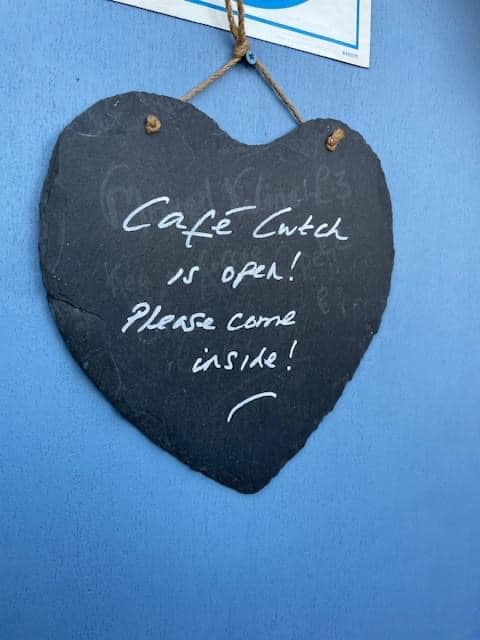 Café Cwtch
is open!
Please come
inside!